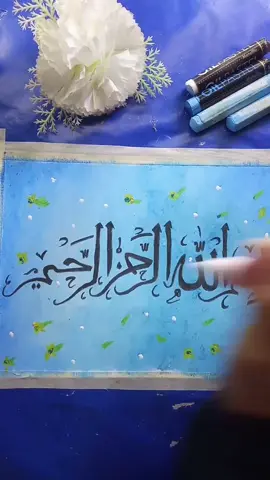 الله الرَّحْمٰنِ الرَّحِيْمِ